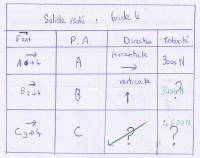 Solide isolé : bride 4
Fext P. A. Direction Intensité
A 6→4 A Horizontale → 3000 N
B 2→4 B verticale ↑ 3400 N ?
C 3→4 C ? 4600 N ?